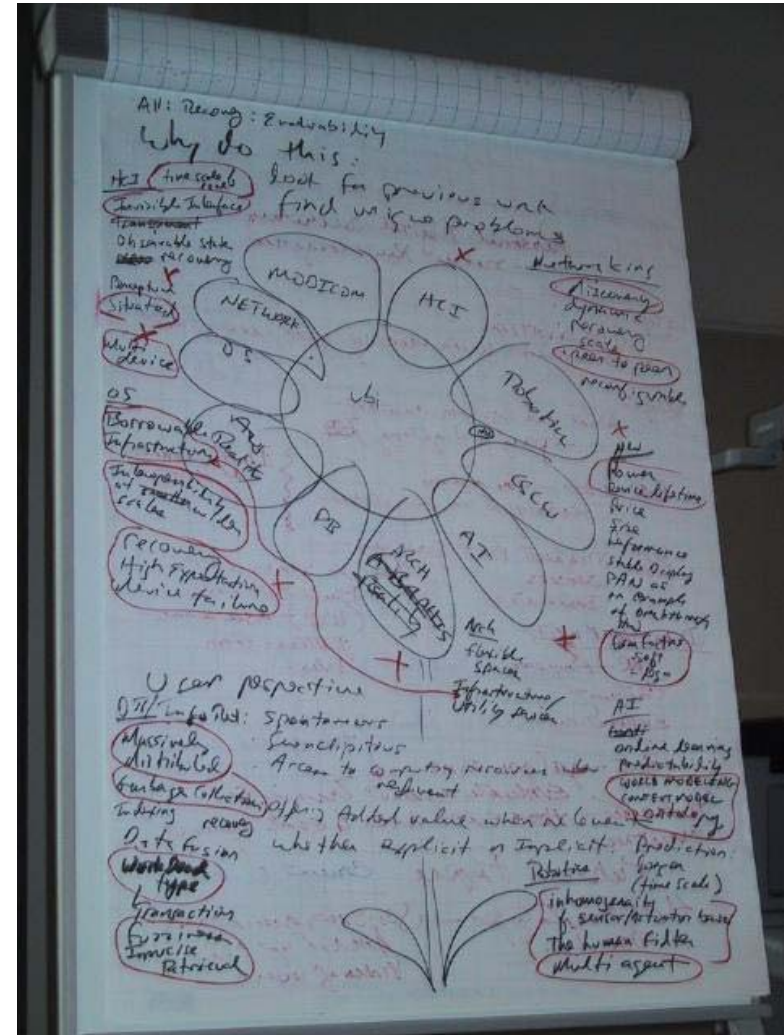 All: Recong: Evolvability
Why do this:
look for previous work
find unique problems
HCI time scale &
Invisible Interface
Transparent
Observable state
recovery
Perception
Situated
Multi
device
OS
Borrowable
Infrastructure
Interoperability
at wider
scales
recovery
High Expectation
device failure
MOBICOM
NETWORK
OS
Reality
DB
ARCH
GRAPHICS
Reality
AI
CSCW
Robotics
HCI
ubi
Networking
discovery
dynamic
recovery
scale
peer to peer
reconfigurable
HW
Power
Device lifetime
Price
Size
Performance
Stable Display
PAN as
an example
of breakthrough
HW
Arch
flexible
spaces
Infrastructure/
Utility services
User perspective
Spontaneous
Serendipitous
Access to computing resources
relevant
Offering Added value when we lower
whether explicit or Implicit
DB/
Massively
distributed
Garbage Collection
Indexing
recovery
Data fusion
Workload
type
Transaction
Fuzziness
Imprecise
Retrieval
AI
online learning
Predictability
WORLD MODELING
CONTEXT MODEL
ontology
Prediction:
longer
(time scale)
Robotics
inhomogeneity
of sensor/actuator based
The human Filter
Multi agent